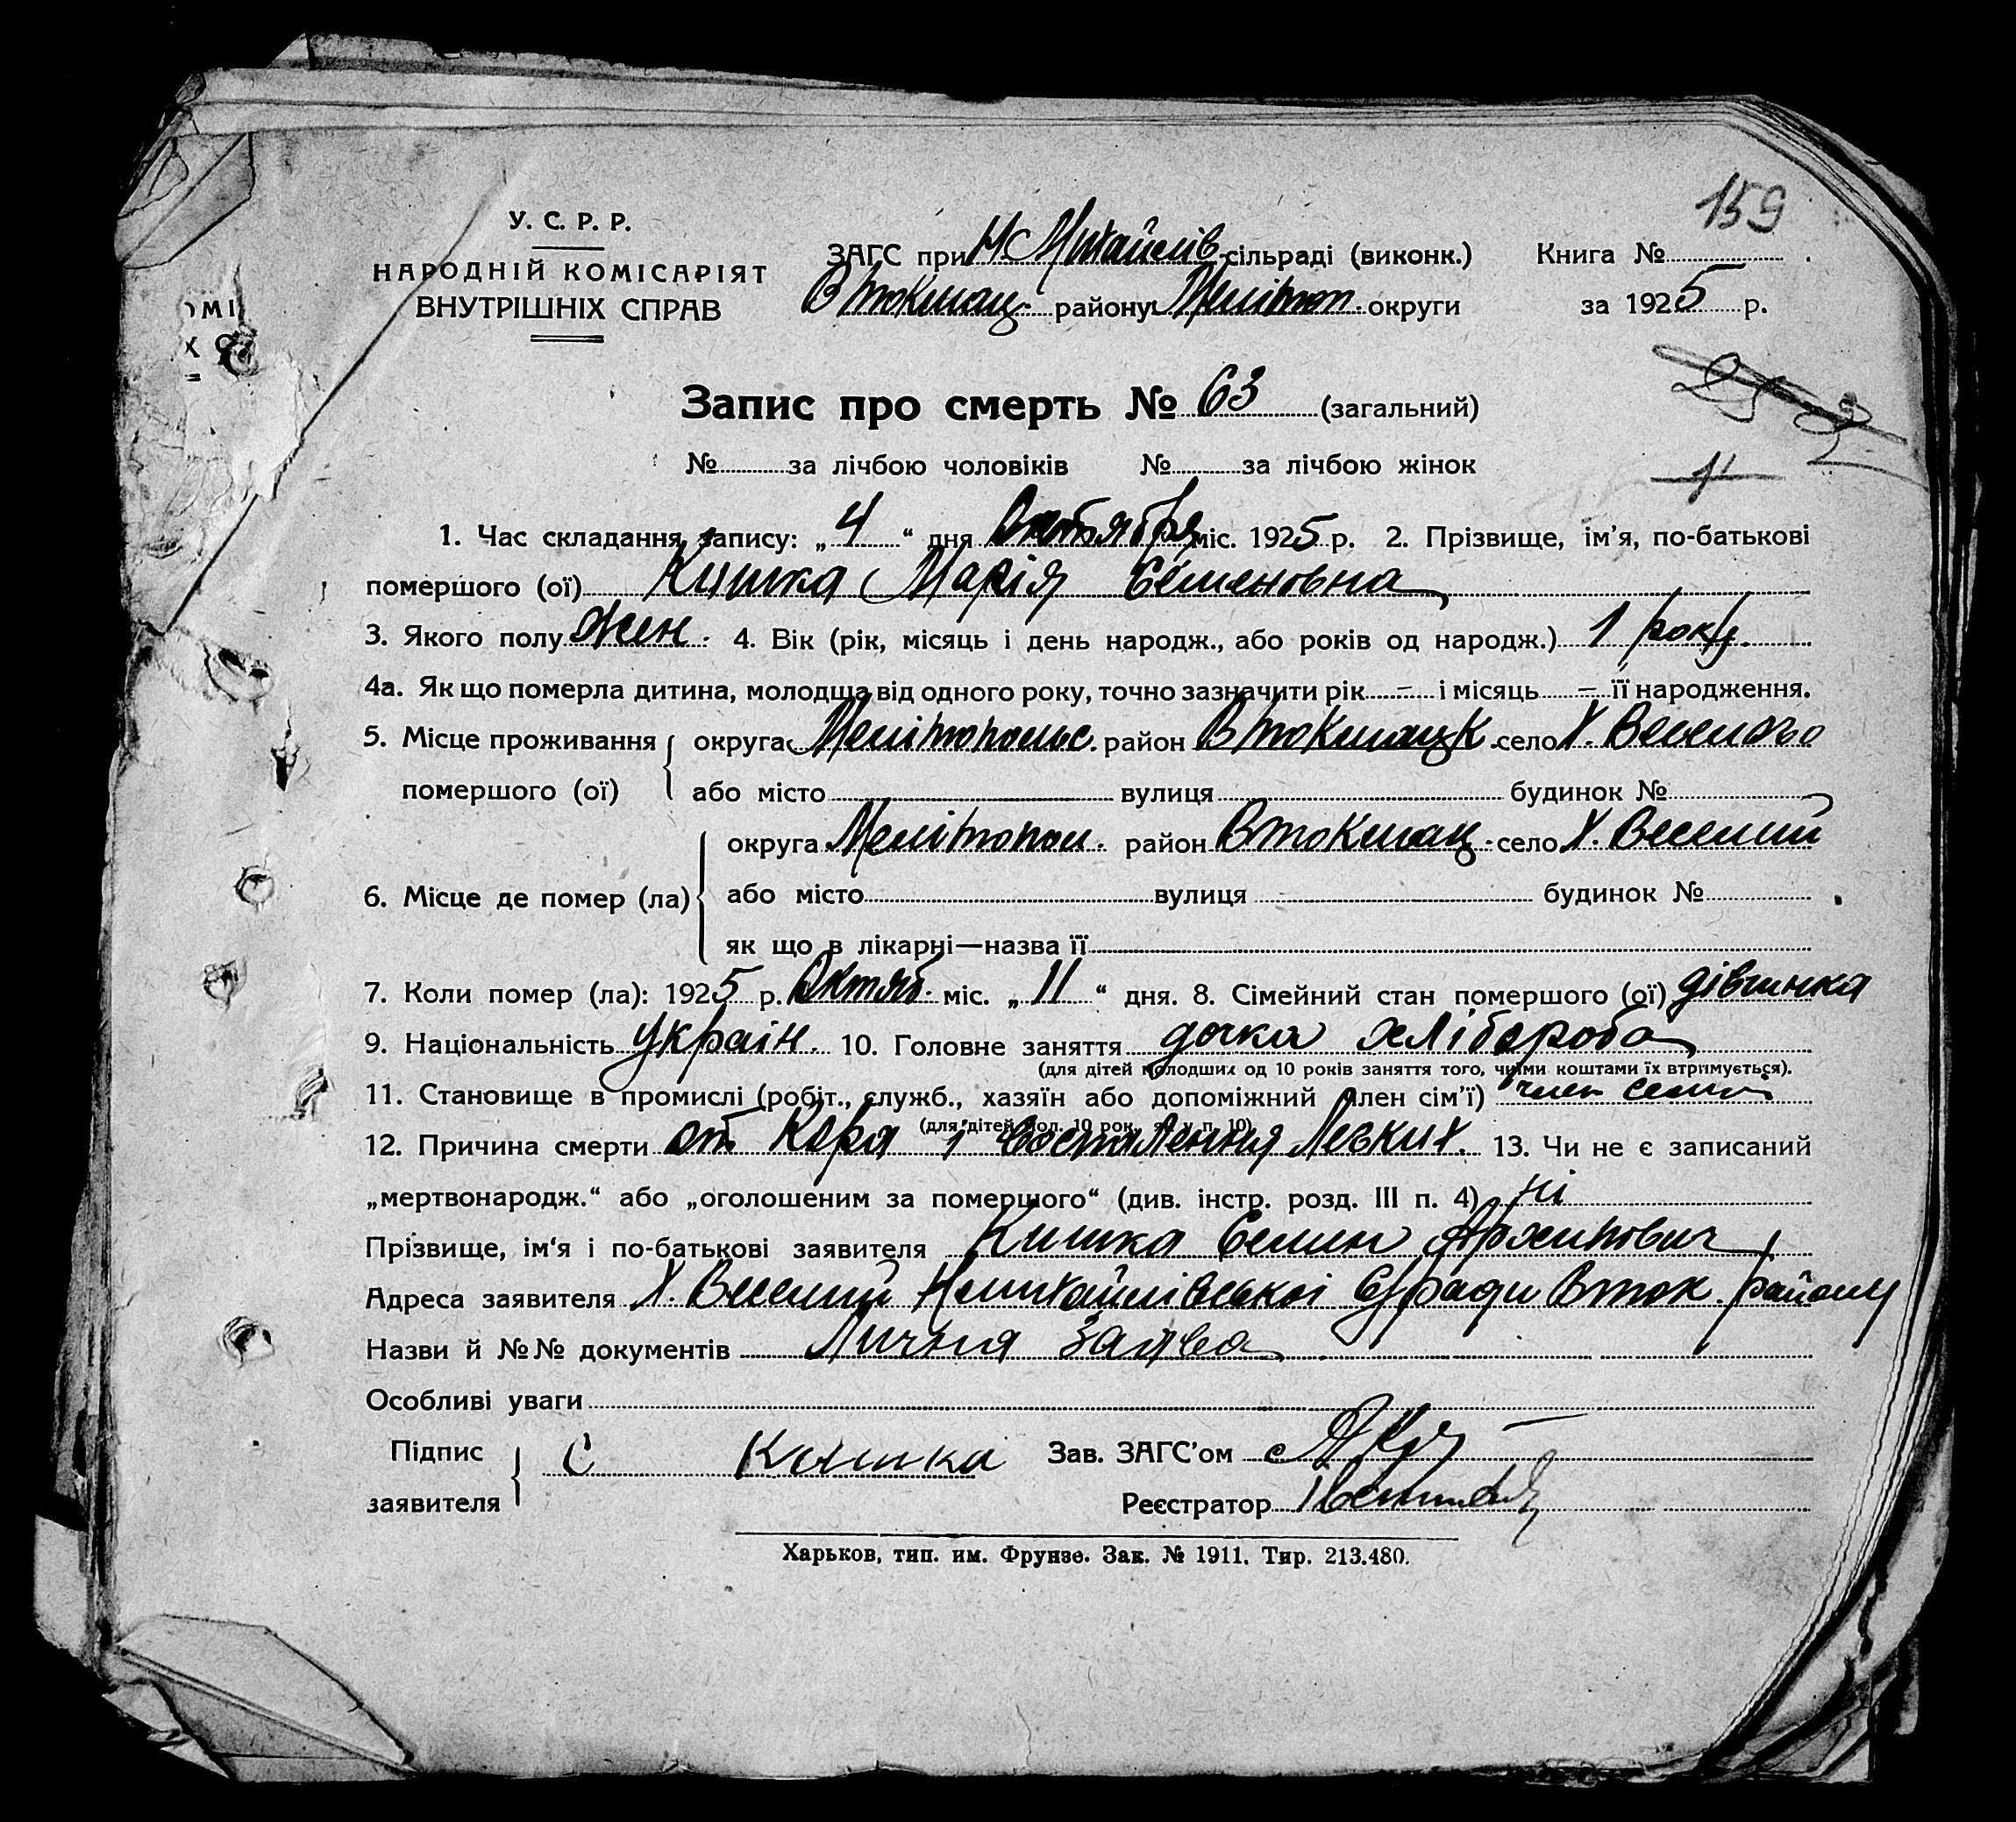 159
У. С. Р. Р.
НАРОДНІЙ КОМІСАРІЯТ
ВНУТРІШНІХ СПРАВ
ЗАГС при сільраді (виконк.)
Втокмац. району Мелітоп. округи
Книга №
за 1925 р.
Запис про смерть № 63 (загальний)
№ за лічбою чоловіків № за лічбою жінок
1. Час складання запису: „4“ дня Октября міс. 1925 р. 2. Прізвище, ім’я, по-батькові
помершого (ої) Кишка Марія Семеновна
3. Якого полу жен. 4. Вік (рік, місяць і день народж., або років од народж.) 1 року.
4а. Як що померла дитина, молодша від одного року, точно зазначити рік – і місяць – її народження.
5. Місце проживання округа Мелітопольс. район Втокмацк. село Х. Веселого
помершого (ої) або місто вулиця будинок №
округа Мелітопол. район Втокмац. село Х. Веселий
6. Місце де помер (ла) або місто вулиця будинок №
як що в лікарні—назва її
7. Коли помер (ла): 1925 р. Октяб. міс. „11“ дня. 8. Сімейний стан помершого (ої) дівчинка
9. Національність україн. 10. Головне заняття дочка хлібороба
(для дітей молодших од 10 років заняття того, чиїми коштами їх втримується).
11. Становище в промислі (робіт., служб., хазяїн або допоміжний член сім’ї) член семьї
(для дітей мол. 10 рок. як у п. 10)
12. Причина смерти от Коря і воспалення Легких. 13. Чи не є записаний
„мертвонародж.“ або „оголошеним за помершого“ (див. інстр. розд. III п. 4) ні
Прізвище, ім’я і по-батькові заявителя Кишка Семен Архипович
Адреса заявителя Х. Веселий С/ради Вток. району
Назви й №№ документів Лична заява
Особливі уваги
Підпис заявителя С Кишка Зав. ЗАГС’ом
Реєстратор
Харьков, тип. им. Фрунзе. Зак. № 1911. Тир. 213.480.